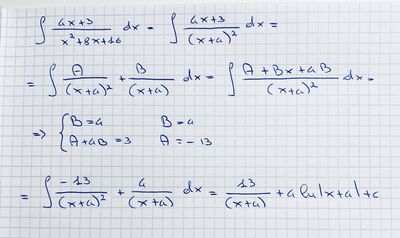 ∫ (4x+3)/(x²+8x+16) dx = ∫ (4x+3)/(x+4)² dx =
= ∫ A/(x+4)² + B/(x+4) dx = ∫ (A+Bx+4B)/(x+4)² dx =
⇒ { B=4 B=4
A+4B=3 A=-13
= ∫ -13/(x+4)² + 4/(x+4) dx = 13/(x+4) + 4 ln|x+4| + c